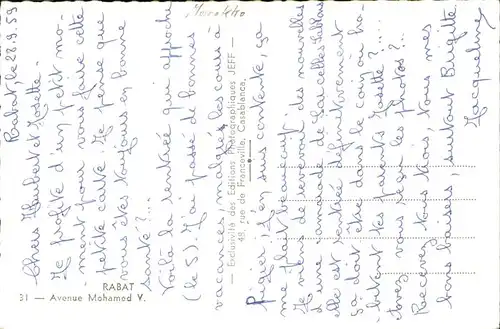 Marokko
Rabat, le 28.9.59
Chers Hubert et Josette.
Je profite d'un petit mo-
ment pour vous faire cette
petite carte. Je pense que
vous êtes toujours en bonne
santé?...
Voilà la rentrée qui approche
(le 5). J'ai passé de bonnes
vacances, malgré les cours à
Pigier. J'en suis contente, ça
me plaît beaucoup.
Je viens de recevoir des nouvelles
d'une camarade de
elle est rentrée définitivement
Ça doit être dans le coin où ha-
bitent tes parents Josette?...
Avez vous reçu les photos?..
Recevez, vous trois, tous mes
bons baisers, surtout Brigitte
Jacqueline
RABAT
31 — Avenue Mohamed V.
— Exclusivité des Editions Photographiques JEFF —
48, rue de Francoville, Casablanca.